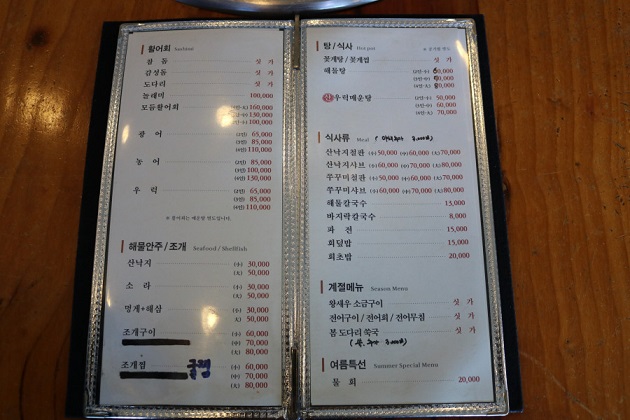 활어회 Sashimi
참돔 싯가
감성돔 싯가
도다리 싯가
놀래미 100,000
모듬활어회 160,000
130,000
100,000
광어 (2인) 65,000
(3인) 85,000
(4인) 110,000
농어 (2인) 85,000
(3인) 100,000
(4인) 130,000
우럭 (2인) 65,000
(3인) 85,000
(4인) 110,000
해물안주/조개 Seafood / Shellfish
산낙지 (小) 30,000
(大) 50,000
소라 (小) 30,000
(大) 50,000
멍게+해삼 (小) 30,000
(大) 50,000
조개구이 (小) 60,000
(中) 70,000
(大) 80,000
조개찜 (小) 60,000
(中) 70,000
(大) 80,000
탕/식사 Hot pot
꽃게탕/꽃게찜 싯가
해물탕
우럭매운탕 (2인) 50,000
(3인) 60,000
(4인) 70,000
식사류 Meal
산낙지철판 (小) 50,000 (中) 60,000 (大) 70,000
산낙지샤브 (小) 60,000 (中) 70,000 (大) 80,000
쭈꾸미철판 (小) 50,000 (中) 60,000 (大) 70,000
쭈꾸미샤브 (小) 60,000 (中) 70,000 (大) 80,000
해물칼국수 13,000
바지락칼국수 8,000
파전 15,000
회덮밥 15,000
회초밥 20,000
계절메뉴 Season Menu
왕새우 소금구이 싯가
전어구이/전어회/전어무침 싯가
봄 도다리 쑥국 싯가
여름특선 Summer Special Menu
물회 20,000